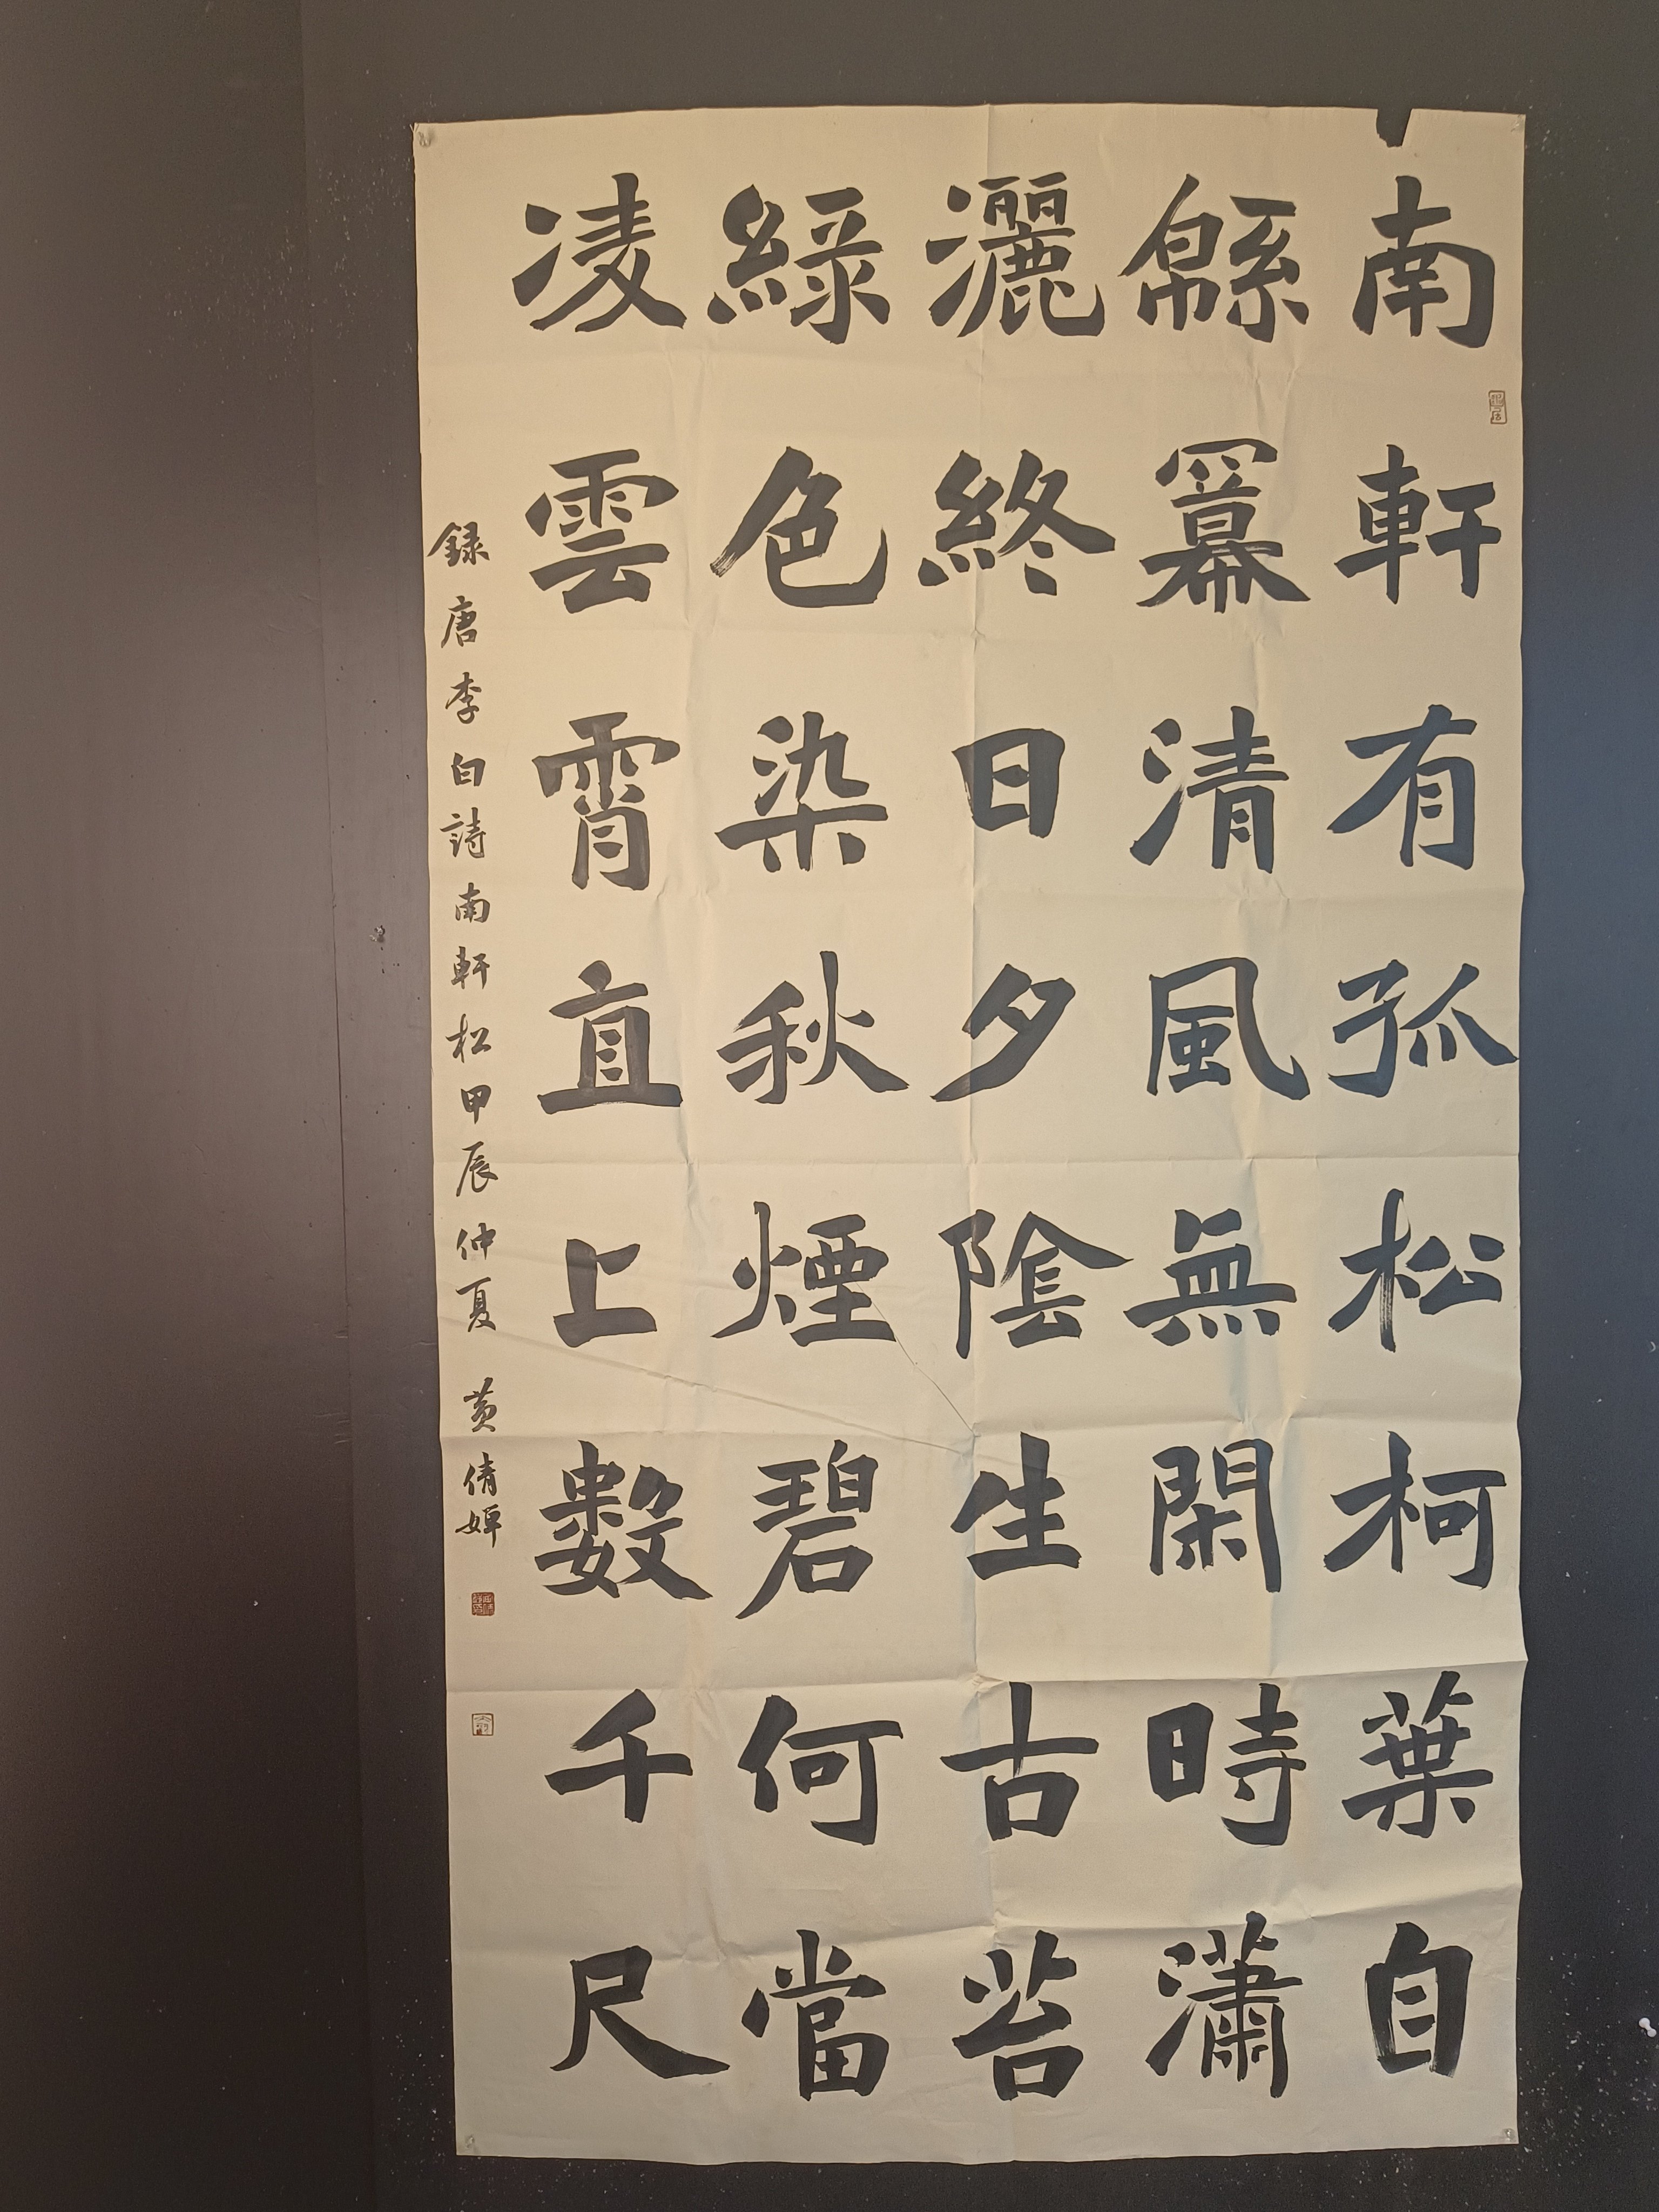 南軒有孤松柯葉自
緜羃清風無閑時瀟
灑終日夕陰生古苔
綠色染秋煙碧何當
凌雲霄直上數千尺
録唐李白詩南軒松甲辰仲夏 黄倩婵